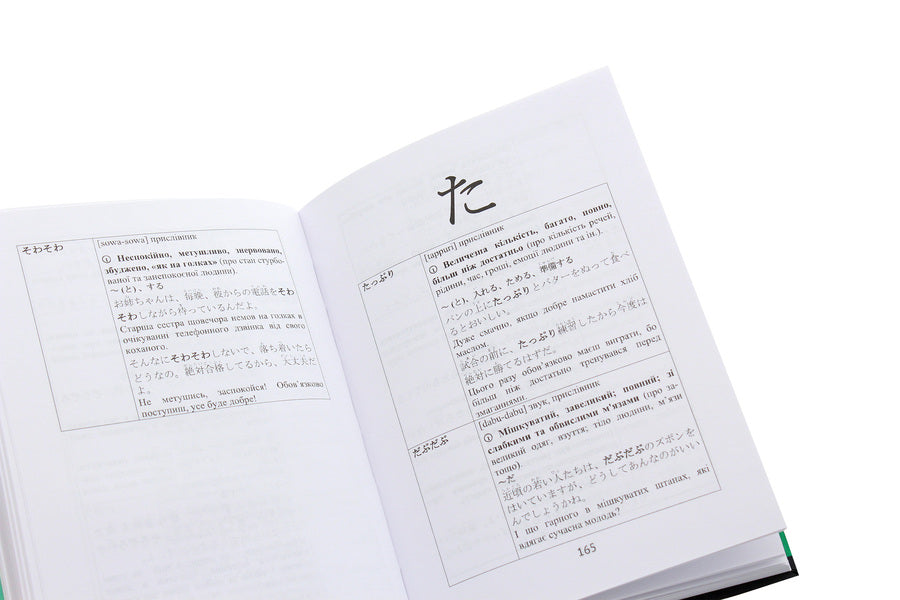 そわそわ
[sowa-sowa] прислівник
① Неспокійно, метушливо, знервовано,
збуджено, «як на голках» (про стан стурбо-
ваної та занепокоєної людини).
～(と)、する
お姉ちゃんは、毎晩、彼からの電話をそわ
そわしながら待っているんだよ。
Старша сестра щовечора немов на голках в
очікуванні телефонного дзвінка від свого
коханого.
そんなにそわそわしないで、落ち着いたら
どうなの。絶対合格してるから、大丈夫だ
よ。
Не метушись, заспокойся! Обов'язково
поступиш, усе буде добре!
た
たっぷり
[tappuri] прислівник
① Величезна кількість, багато, повно,
більш ніж достатньо (про кількість речей,
рідини, час, гроші, емоції людини та ін.).
～(と)、入れる、ためる、準備する
パンの上にたっぷりとバターをぬって食べ
るとおいしい。
Дуже смачно, якщо добре намастити хліб
маслом.
試合の前に、たっぷり練習したから今度は
絶対に勝てるはずだ。
Цього разу обов'язково маєш виграти, бо
більш ніж достатньо тренувався перед
змаганнями.
だぶだぶ
[dabu-dabu] звук, прислівник
① Мішкуватий, завеликий; повний; зі
слабкими та обвислими м'язами (про за-
великий одяг, взуття; тіло людини, м'язи
тощо).
～だ
近頃の若い人たちは、だぶだぶのズボンを
はいていますが、どうしてあんなのがいい
んでしょうかね。
І що гарного в мішкуватих штанах, які
вдягає сучасна молодь?
165